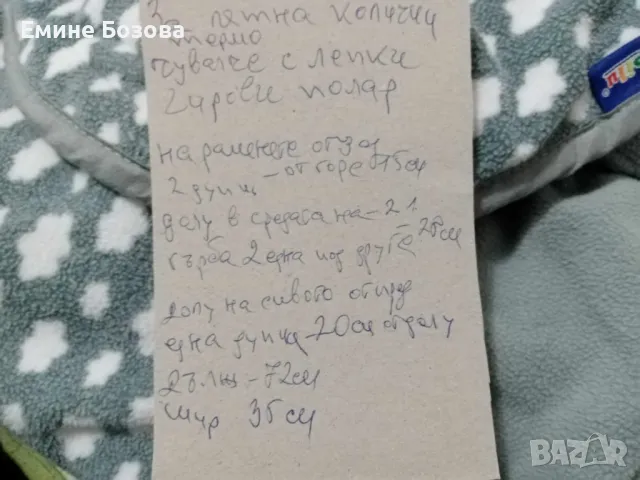 Емине Бозова
За лятна количка
термо
чувалче с лепки
2 пролови полар
на раменете отзад
2 дупки - отгоре 15см
долу в средата на - 21
гърба 2 една под друга 26см
долу на сивото отпред
една дупка - 20см отдолу
дължи - 72см
шир 35см
BAZAR